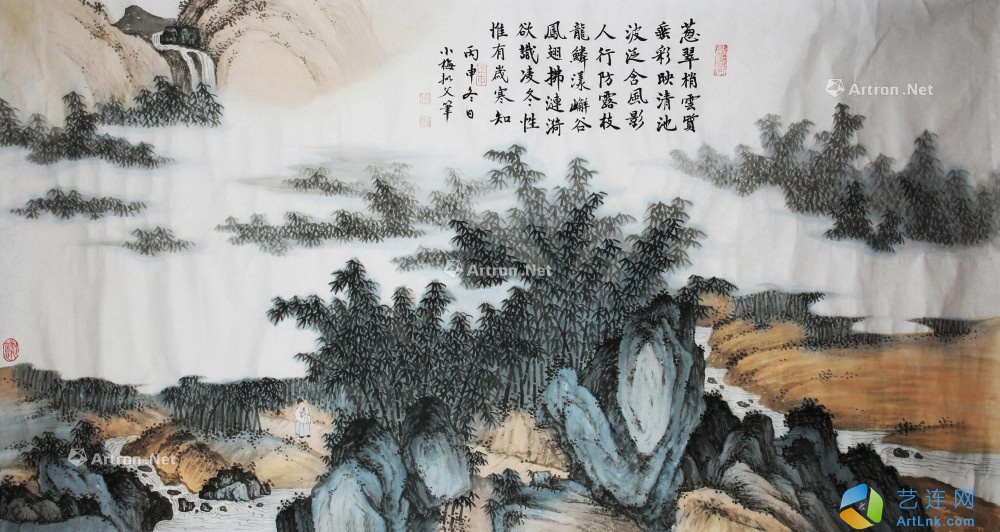 葱翠梢雲質
垂彩映清池
波泛含風影
人行防露枝
龍鱗漾嶰谷
鳳翅拂漣漪
欲識凌冬性
惟有歲寒知
丙申冬日
小梅拟文筆
Artron.Net
Artron.Net
Artron.Net
Artron.Net
艺连网
ArtLnk.com